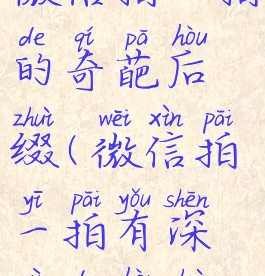 de qí pā hòu
的奇葩后
zhuì wēi xìn pāi
缀(微信拍
yī pāi yǒu shēn
一拍有深